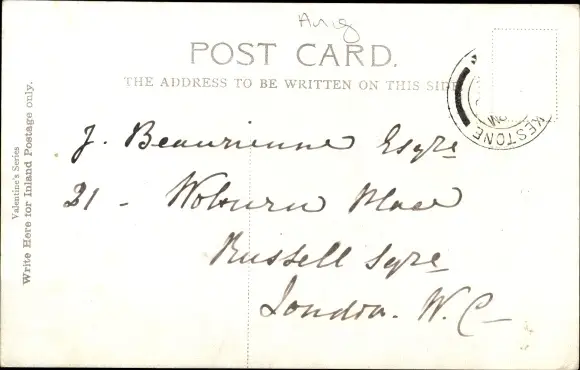 Aug
POST CARD.
THE ADDRESS TO BE WRITTEN ON THIS SIDE
KESTONE
PM
Valentine's Series
Write Here for Inland Postage only.
J. Beaurienne Esqre
21 - Woburn Place
Russell Sqre
London. W.C